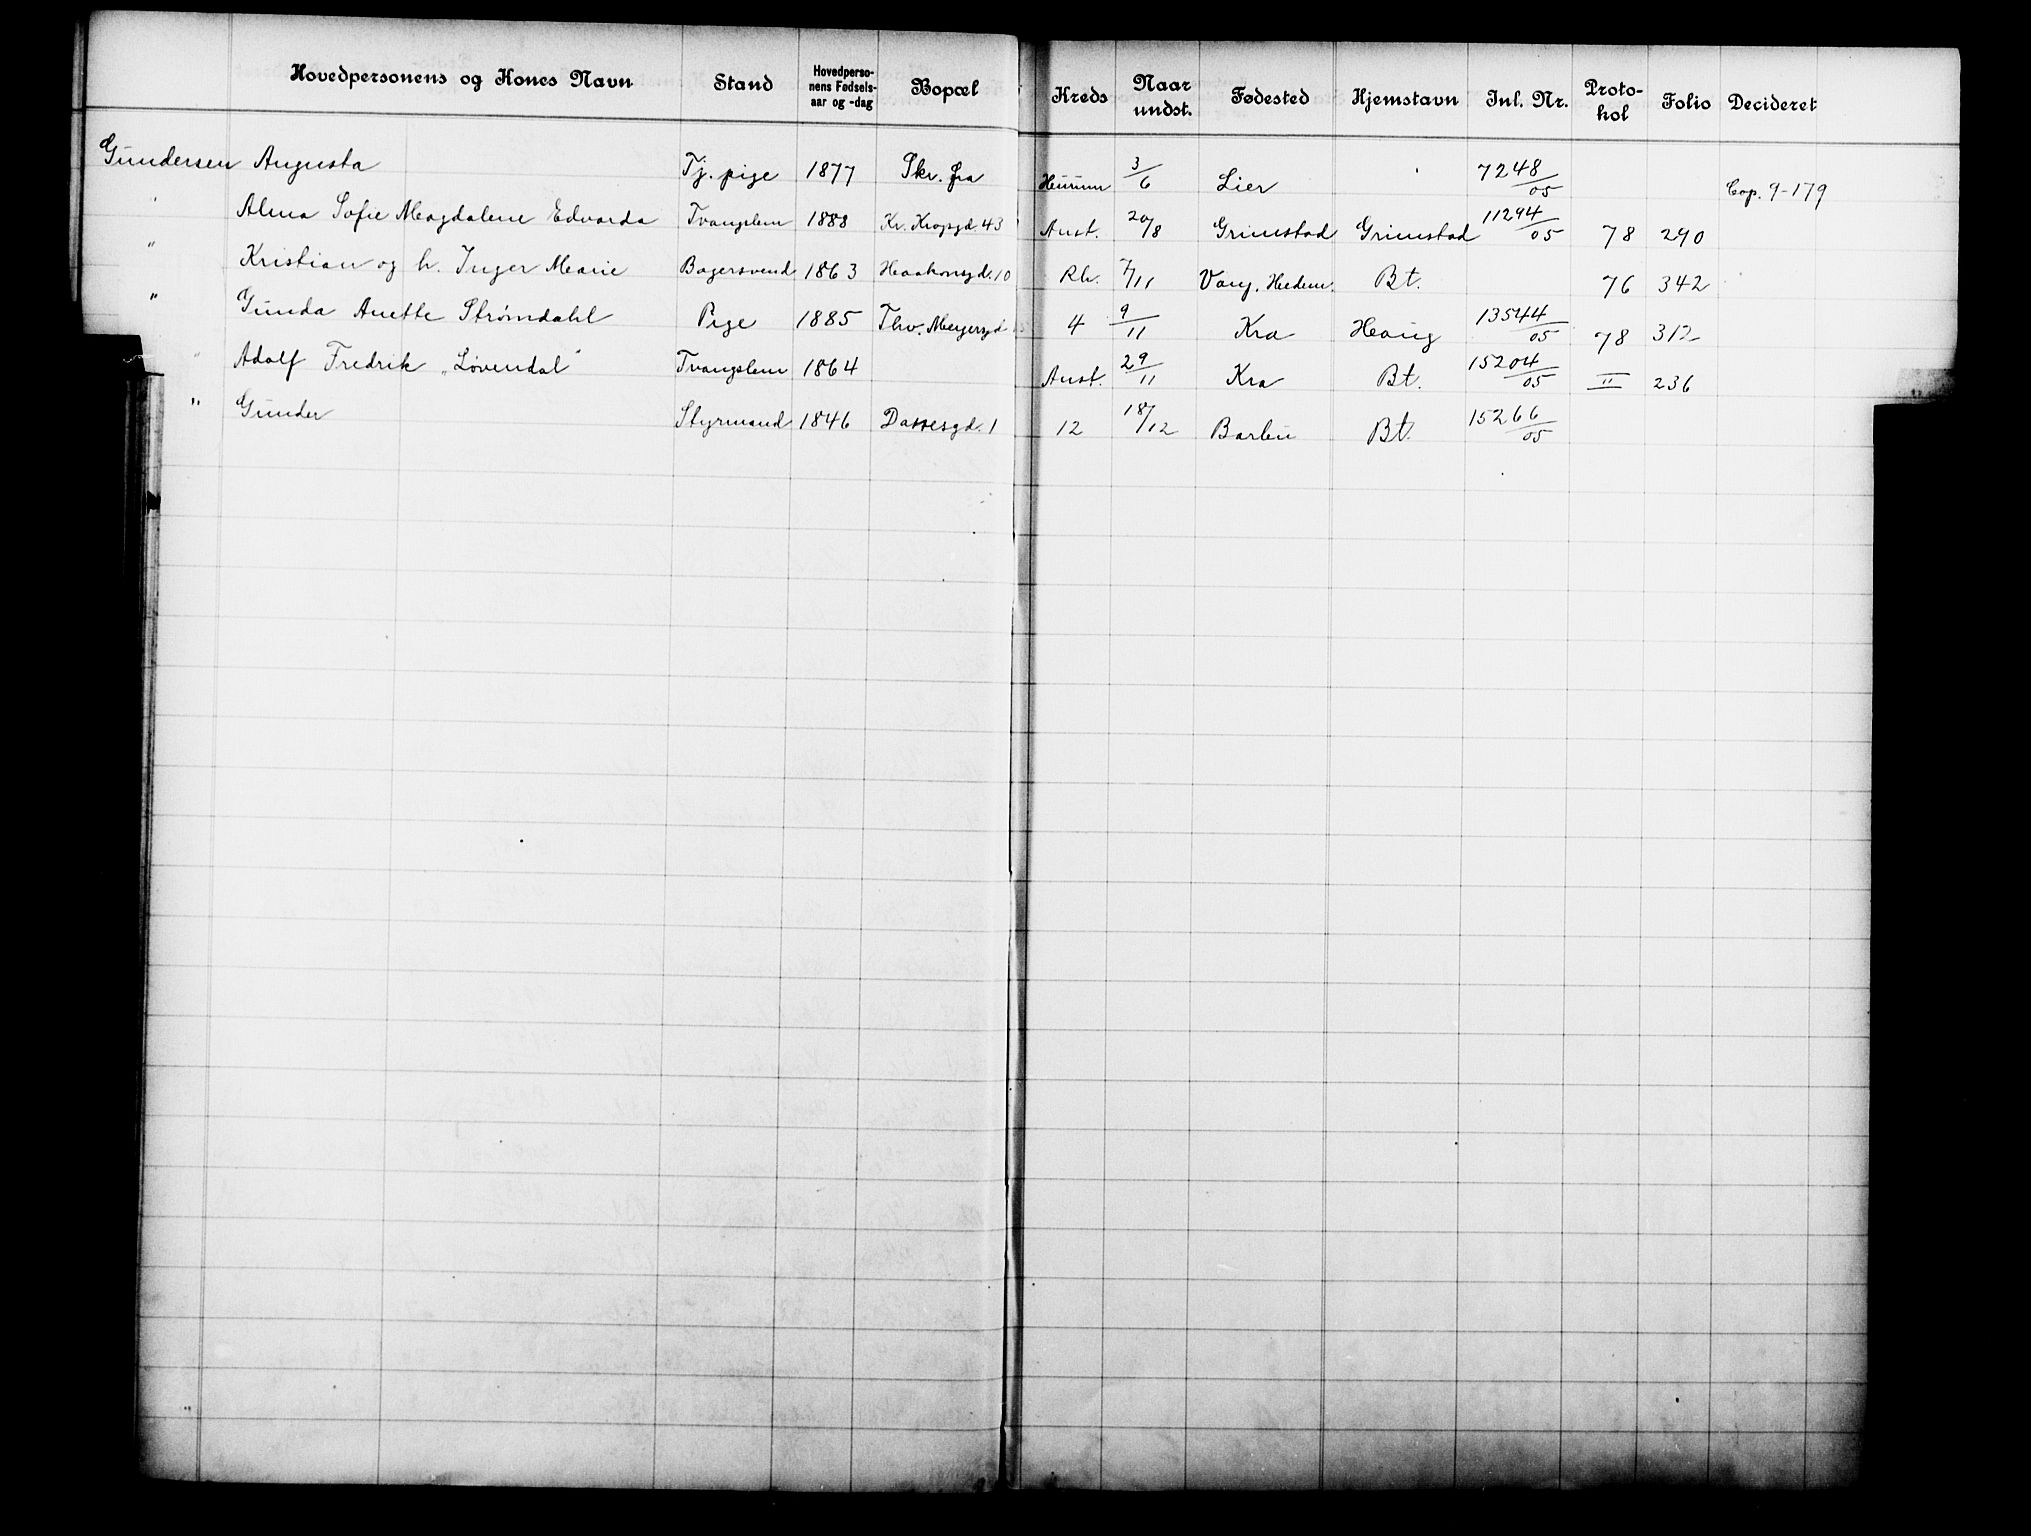 Hovedpersonens og Kones Navn Stand Hovedperso-nens Fødsels-aar og -dag Bopæl Kreds Naar undst. Fødested Hjemstavn Inl. Nr. Proto-kol Folio Decideret
Gundersen Augusta Tj. pige 1877 Skr. fra Hurum 3/6 Lier 7248/05 Cop. 9-179
" Alma Sofie Magdalene Edvarda Tvangslem 1888 Kr. Krogsgd. 43 Anst. 20/8 Grimstad Grimstad 11294/05 78 290
" Kristian og h. Inger Marie Bagersvend 1863 Haakonsgd. 10 Rh. 7/11 Vang, Hedem. Bt. 76 342
" Gunda Anette Strømdahl Pige 1885 Thv. Meyersgd 4 9/11 Kra Haug 13544/05 78 312
" Adolf Fredrik „Løvendal" Tvangslem 1864 Anst. 29/11 Kra Bt. 15204/05 II 236
" Gunder Styrmand 1846 Dassesgd. 1 12 18/12 Barbu Bt. 15266/05